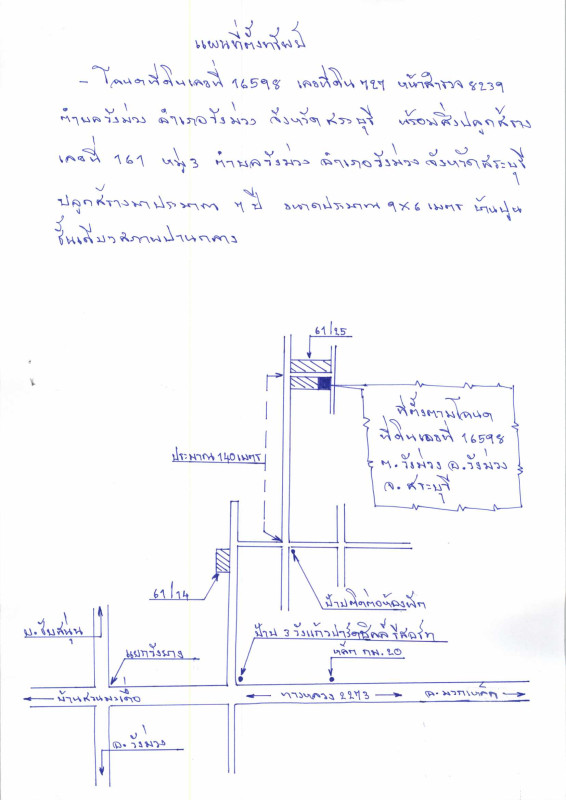 แผนที่ตั้งทรัพย์
- โฉนดที่ดินเลขที่ 16598 เลขที่ดิน 727 หน้าสำรวจ 8239
ตำบลวังม่วง อำเภอวังม่วง จังหวัดสระบุรี พร้อมสิ่งปลูกสร้าง
เลขที่ 161 หมู่ 3 ตำบลวังม่วง อำเภอวังม่วง จังหวัดสระบุรี
ปลูกสร้างมาประมาณ 7 ปี ขนาดประมาณ 9x6 เมตร บ้านปูน
ชั้นเดียวสภาพปานกลาง
61/25
ที่ตั้งตามโฉนด
ที่ดินเลขที่ 16598
ต.วังม่วง อ.วังม่วง
จ. สระบุรี
ประมาณ 140 เมตร
61/14
ป้ายติดต่อห้องพัก
บ.ซับสนุ่น
ป้าย 3 วังแก้วปาร์ค รีสอร์ท
หลัก กม.20
แยกวังยาง
บ้านสวนมะเดื่อ
ทางหลวง 2273
อ. มวกเหล็ก
อ. วังม่วง